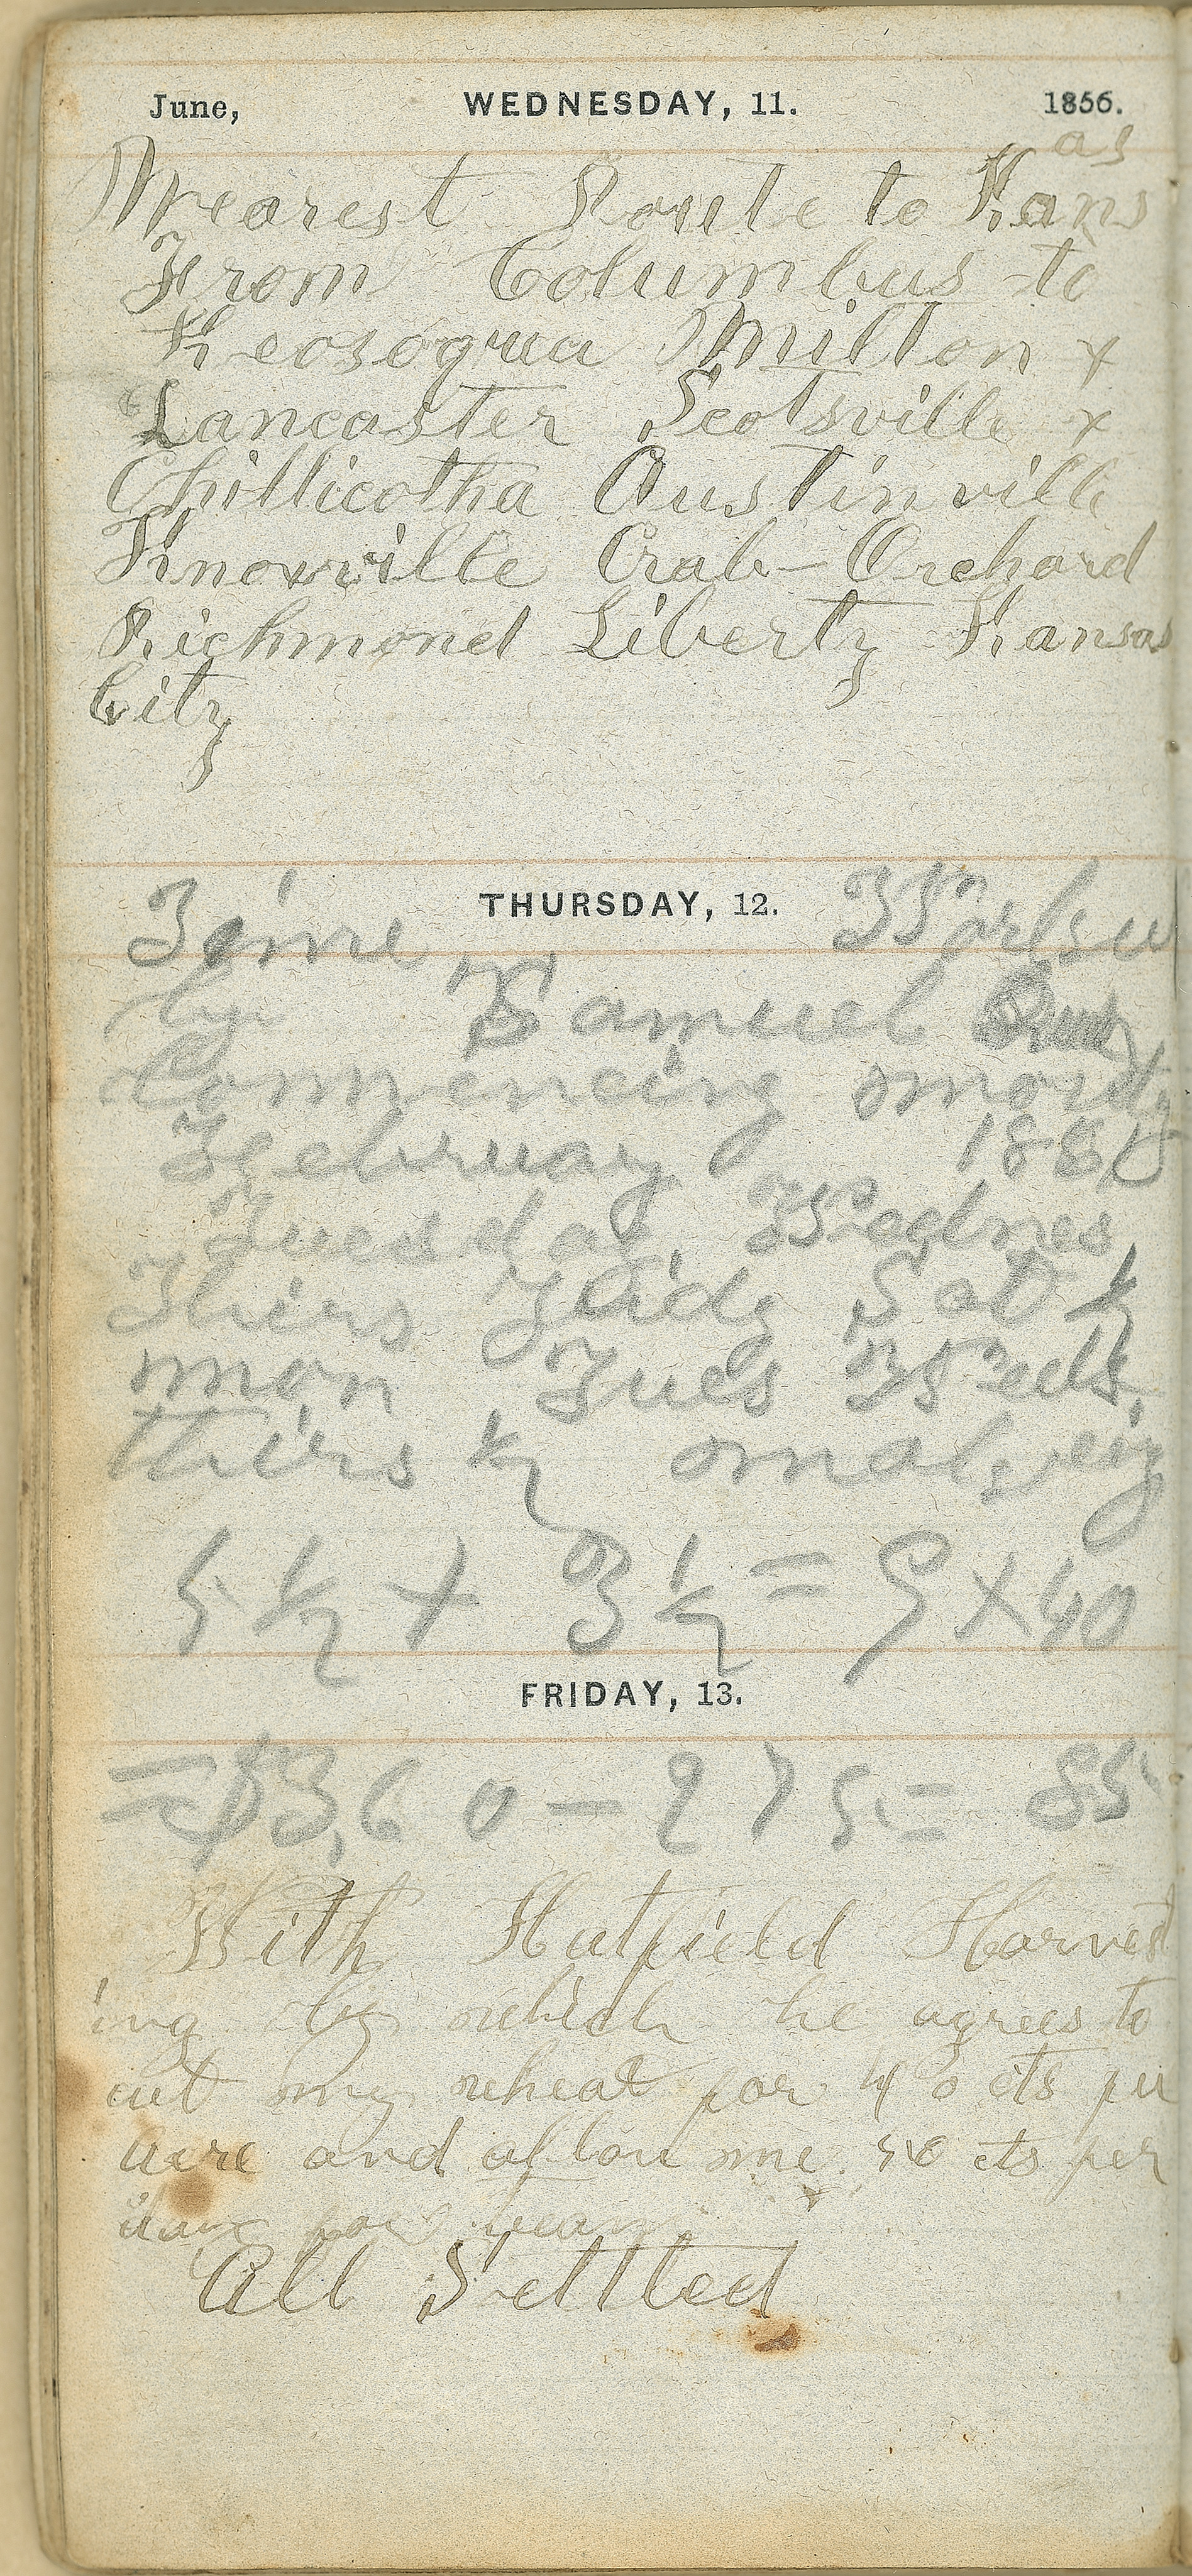 June, WEDNESDAY, 11. 1856.
as
Nearest Route to Kans
From Columbus to
Keosoqua Milton +
Lancaster Scotsville +
Chillicotha Austinville
Knoxville Crab-Orchard
Richmond Liberty Kansas
City
THURSDAY, 12.
Time Worked
by Samuel
Commencing mondy
February 188
Tuesday, Wednes,
Thirs Fridy Sat ½
mon Tues Weds,
thirs ½ making
5 ½ + 3 ½ = 9 x 40
FRIDAY, 13.
= $3,60 - 275 = 85
With Hatfield Harvest
ing by which he agrees to
cut my wheat for 40 cts per
acre and allow me 50 cts per
day for team
All Settled